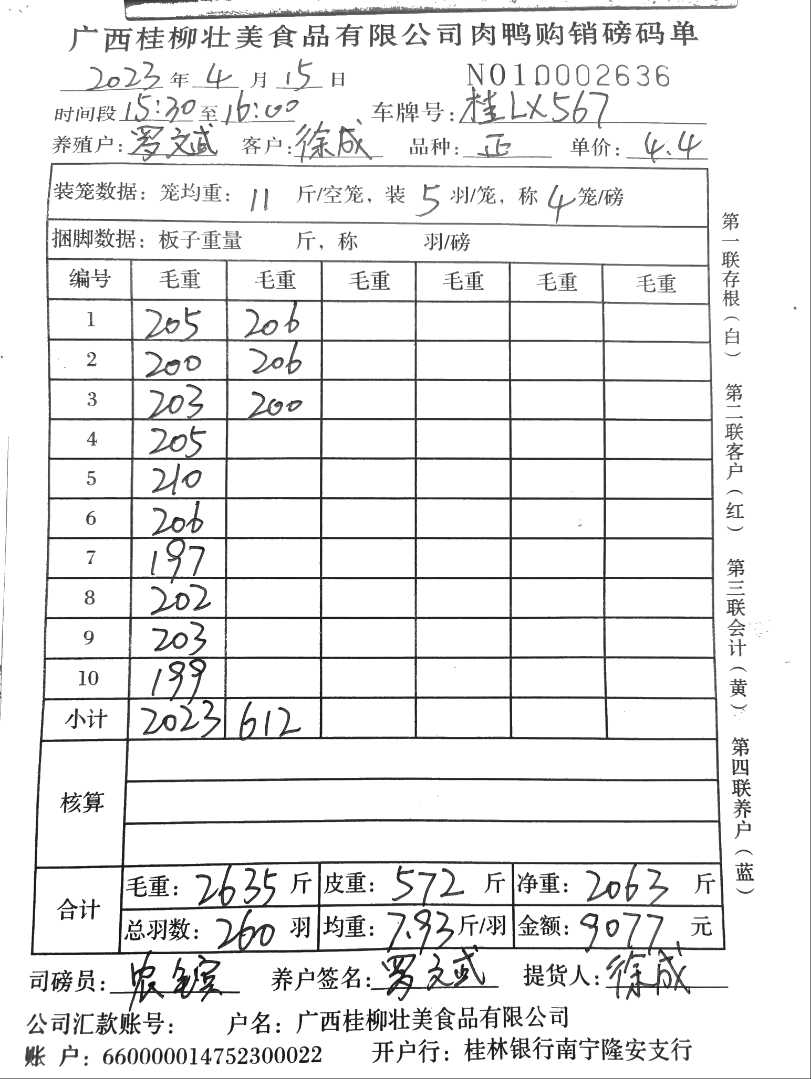 广西桂柳壮美食品有限公司肉鸭购销磅码单
2023年4月15日 NO10002636
时间段15:30至16:00 车牌号:桂LX567
养殖户:罗文武 客户:徐成 品种:正 单价:4.4
装笼数据:笼均重:11斤/空笼,装5羽/笼,称4笼/磅
捆脚数据:板子重量 斤,称 羽/磅
编号 毛重 毛重 毛重 毛重 毛重 毛重
1 205 206
2 200 206
3 203 200
4 205
5 210
6 206
7 197
8 202
9 203
10 199
小计 2023 612
核算
合计
毛重:2635斤 皮重:572斤 净重:2063斤
总羽数:260羽 均重:7.93斤/羽 金额:9077元
司磅员:农 养户签名:罗文武 提货人:徐成
公司汇款账号: 户名:广西桂柳壮美食品有限公司
账户:660000014752300022 开户行:桂林银行南宁隆安支行
第一联存根(白)
第二联客户(红)
第三联会计(黄)
第四联养户(蓝)